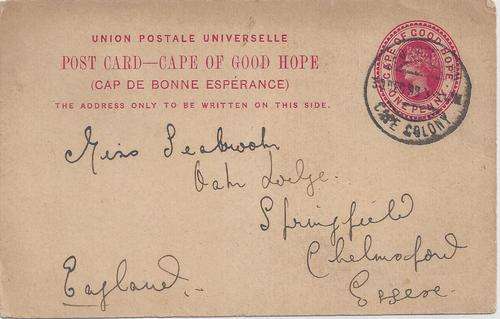 UNION POSTALE UNIVERSELLE
POST CARD—CAPE OF GOOD HOPE
(CAP DE BONNE ESPÉRANCE)
THE ADDRESS ONLY TO BE WRITTEN ON THIS SIDE.
CAPE OF GOOD HOPE
ONE PENNY
CAPE COLONY
Miss Seabrook
Oak Lodge.
Springfield
Chelmsford
Essex.
England..